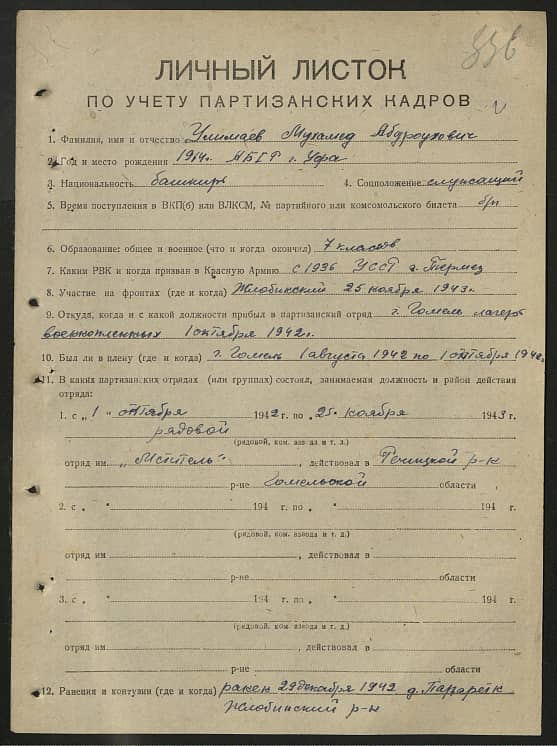 336
ЛИЧНЫЙ ЛИСТОК
ПО УЧЕТУ ПАРТИЗАНСКИХ КАДРОВ
1. Фамилия, имя и отчество Улимаев Мухамед Абдроухович
2. Год и место рождения 1914г. АБССР г. Уфа
3. Национальность башкир 4. Соцположение служащий
5. Время поступления в ВКП(б) или ВЛКСМ, № партийного или комсомольского билета б/п
6. Образование: общее и военное (что и когда окончил) 7 классов
7. Каким РВК и когда призван в Красную Армию с 1936 УССР г. Термез
8. Участие на фронтах (где и когда) Жлобинский 25 ноября 1943г.
9. Откуда, когда и с какой должности прибыл в партизанский отряд г. Гомель лагерь
военнопленных 1 октября 1942г.
10. Был ли в плену (где и когда) г. Гомель 1 августа 1942 по 1 октября 1942г.
11. В каких партизанских отрядах (или группах) состоял, занимаемая должность и район действия
отряда:
1. с „1" октября 1942 г. по „25" ноября 1943 г.
рядовой
(рядовой, ком. взвода и т. д.)
отряд им „Мститель", действовал в Речицкой р-н
р-не Гомельской области
2. с „ " 194 г. по „ " 194 г.
(рядовой, ком. взвода и т. д.)
отряд им , действовал в
р-не области
3. с „ " 194 г. по „ " 194 г.
(рядовой, ком. взвода и т. д.)
отряд им , действовал в
р-не области
12. Ранения и контузии (где и когда) ранен 29 декабря 1942 д.
Жлобинский р-н